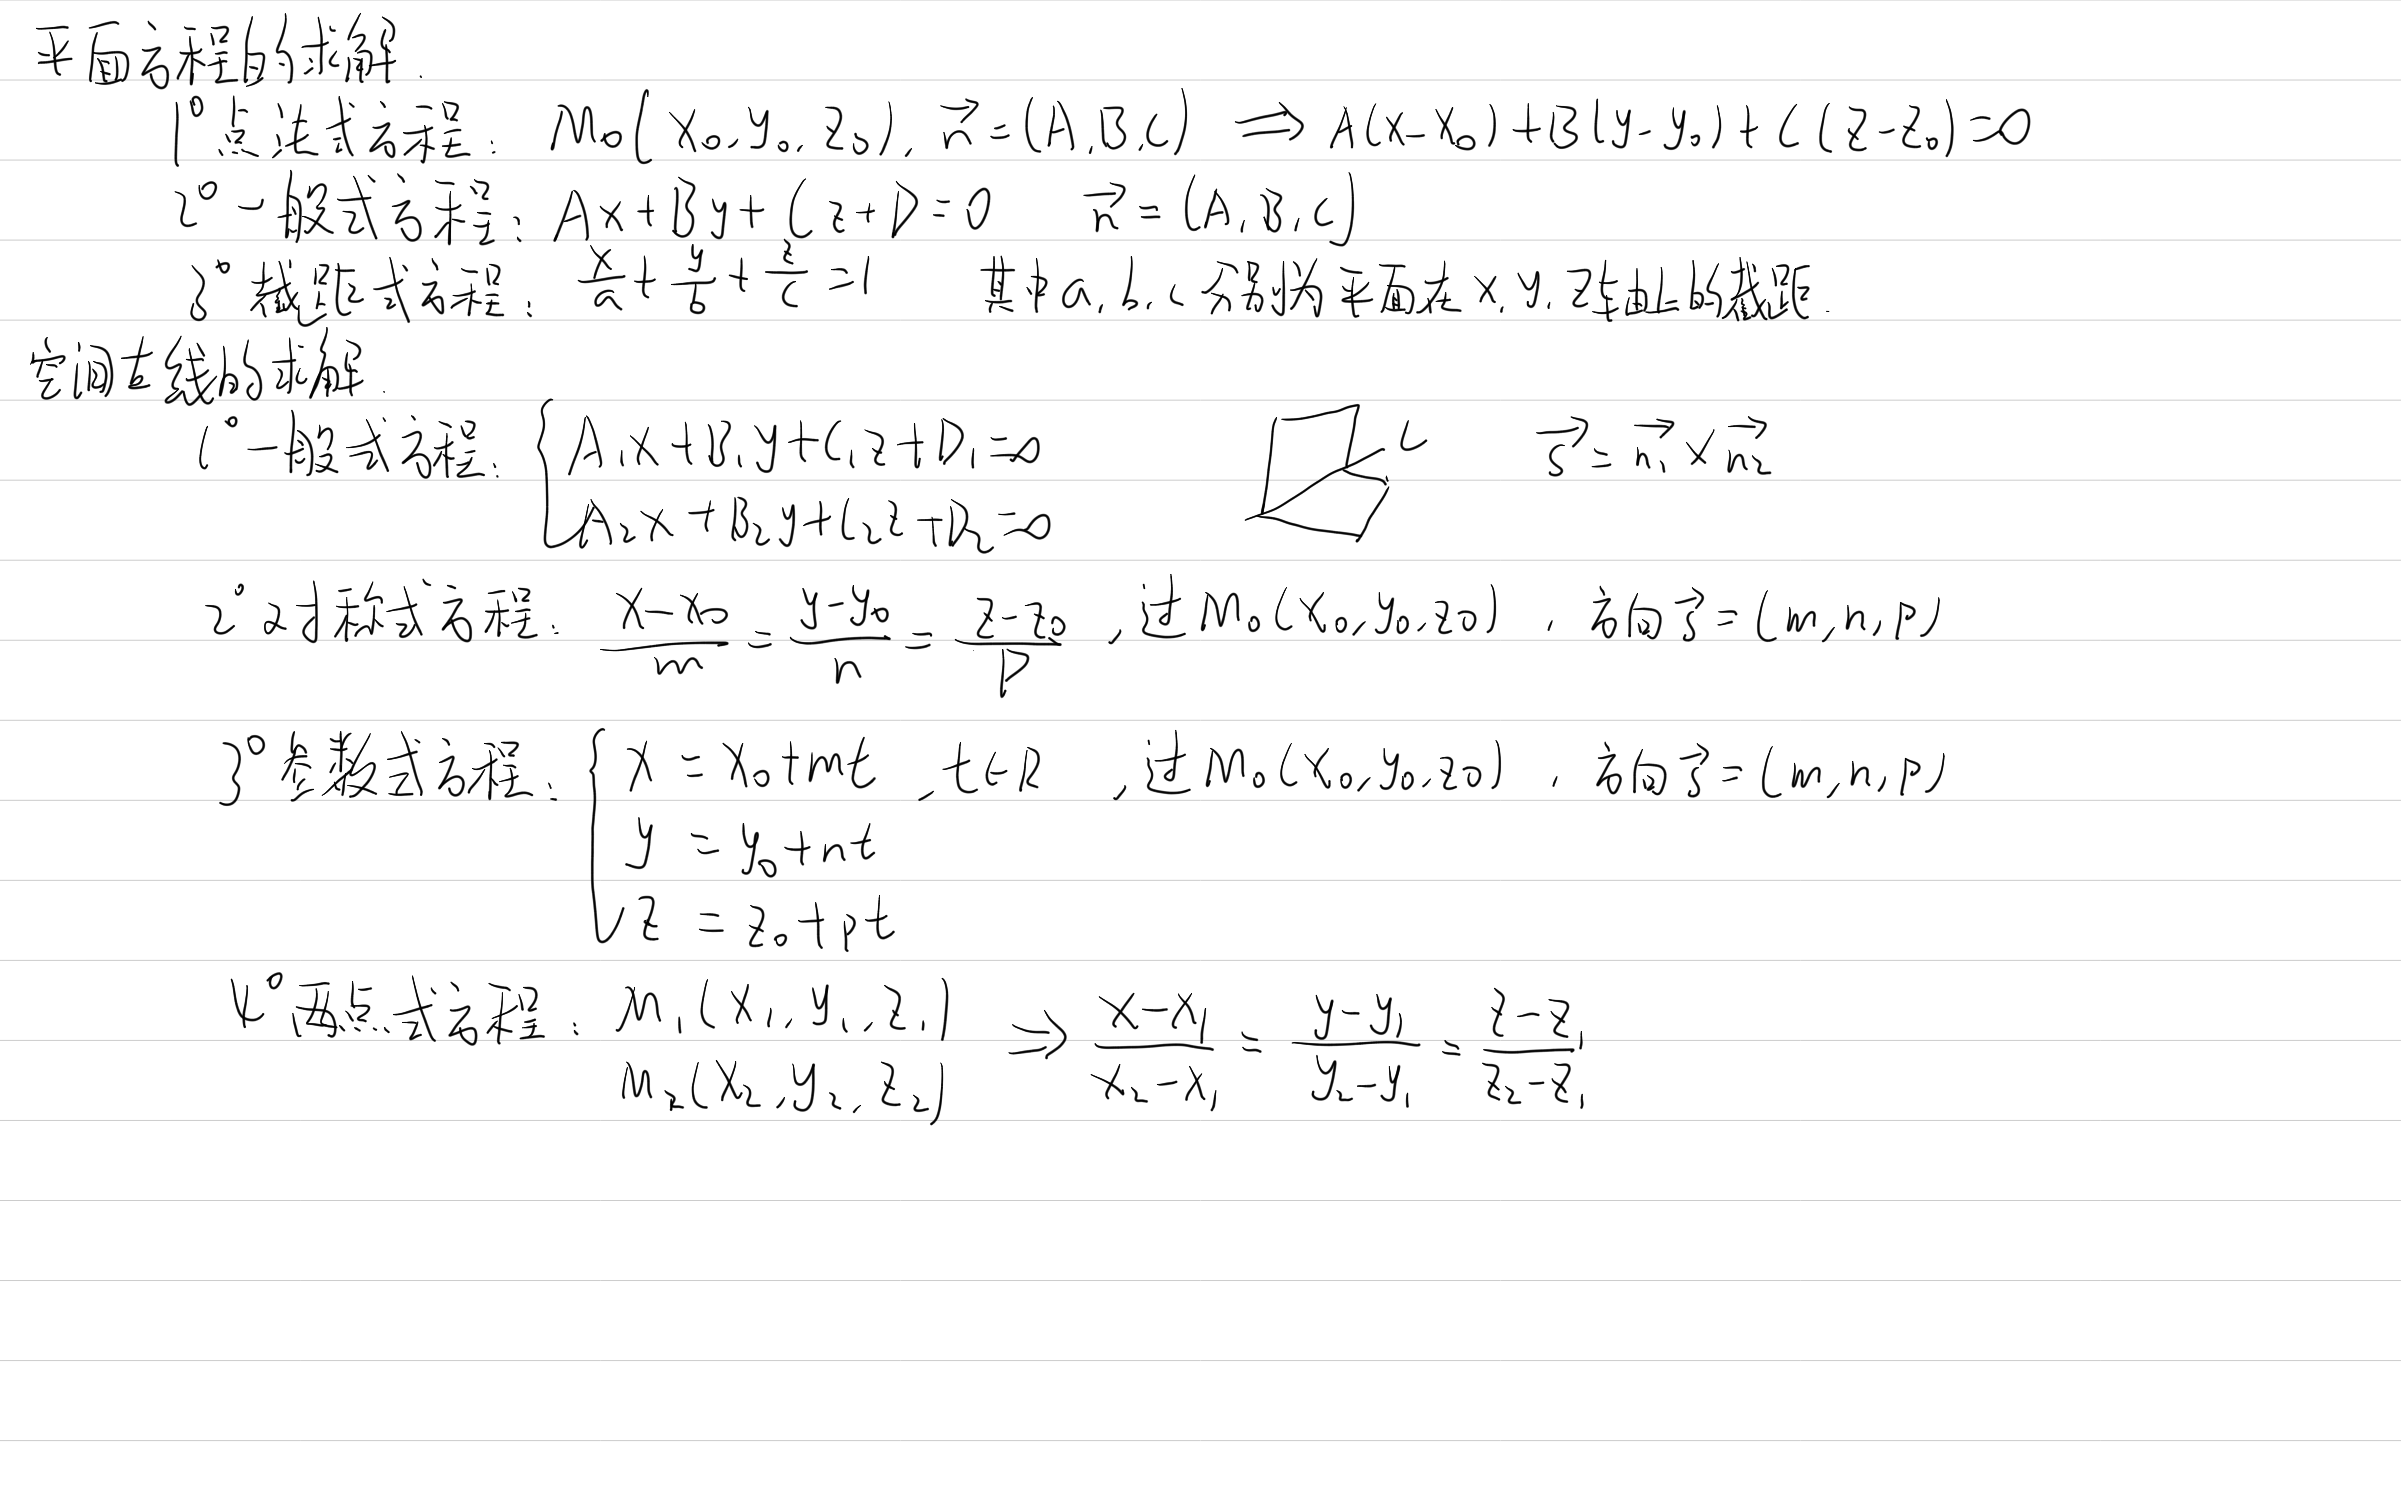 平面方程的求解.
1° 点法式方程: M₀(x₀,y₀,z₀), n⃗=(A,B,C) ⟹ A(x-x₀)+B(y-y₀)+C(z-z₀)=0
2° 一般式方程: Ax+By+Cz+D=0 n⃗=(A,B,C)
3° 截距式方程: x/a+y/b+z/c=1 其中a,b,c分别为平面在x,y,z轴上的截距.
空间直线的求解.
1° 一般式方程: { A₁x+B₁y+C₁z+D₁=0 L s⃗=n₁⃗×n₂⃗
A₂x+B₂y+C₂z+D₂=0
2° 对称式方程: (x-x₀)/m=(y-y₀)/n=(z-z₀)/p ,过M₀(x₀,y₀,z₀), 方向s⃗=(m,n,p)
3° 参数式方程: { x=x₀+mt ,t∈R ,过M₀(x₀,y₀,z₀), 方向s⃗=(m,n,p)
y=y₀+nt
z=z₀+pt
4° 两点式方程: M₁(x₁,y₁,z₁) ⟹ (x-x₁)/(x₂-x₁)=(y-y₁)/(y₂-y₁)=(z-z₁)/(z₂-z₁)
M₂(x₂,y₂,z₂)